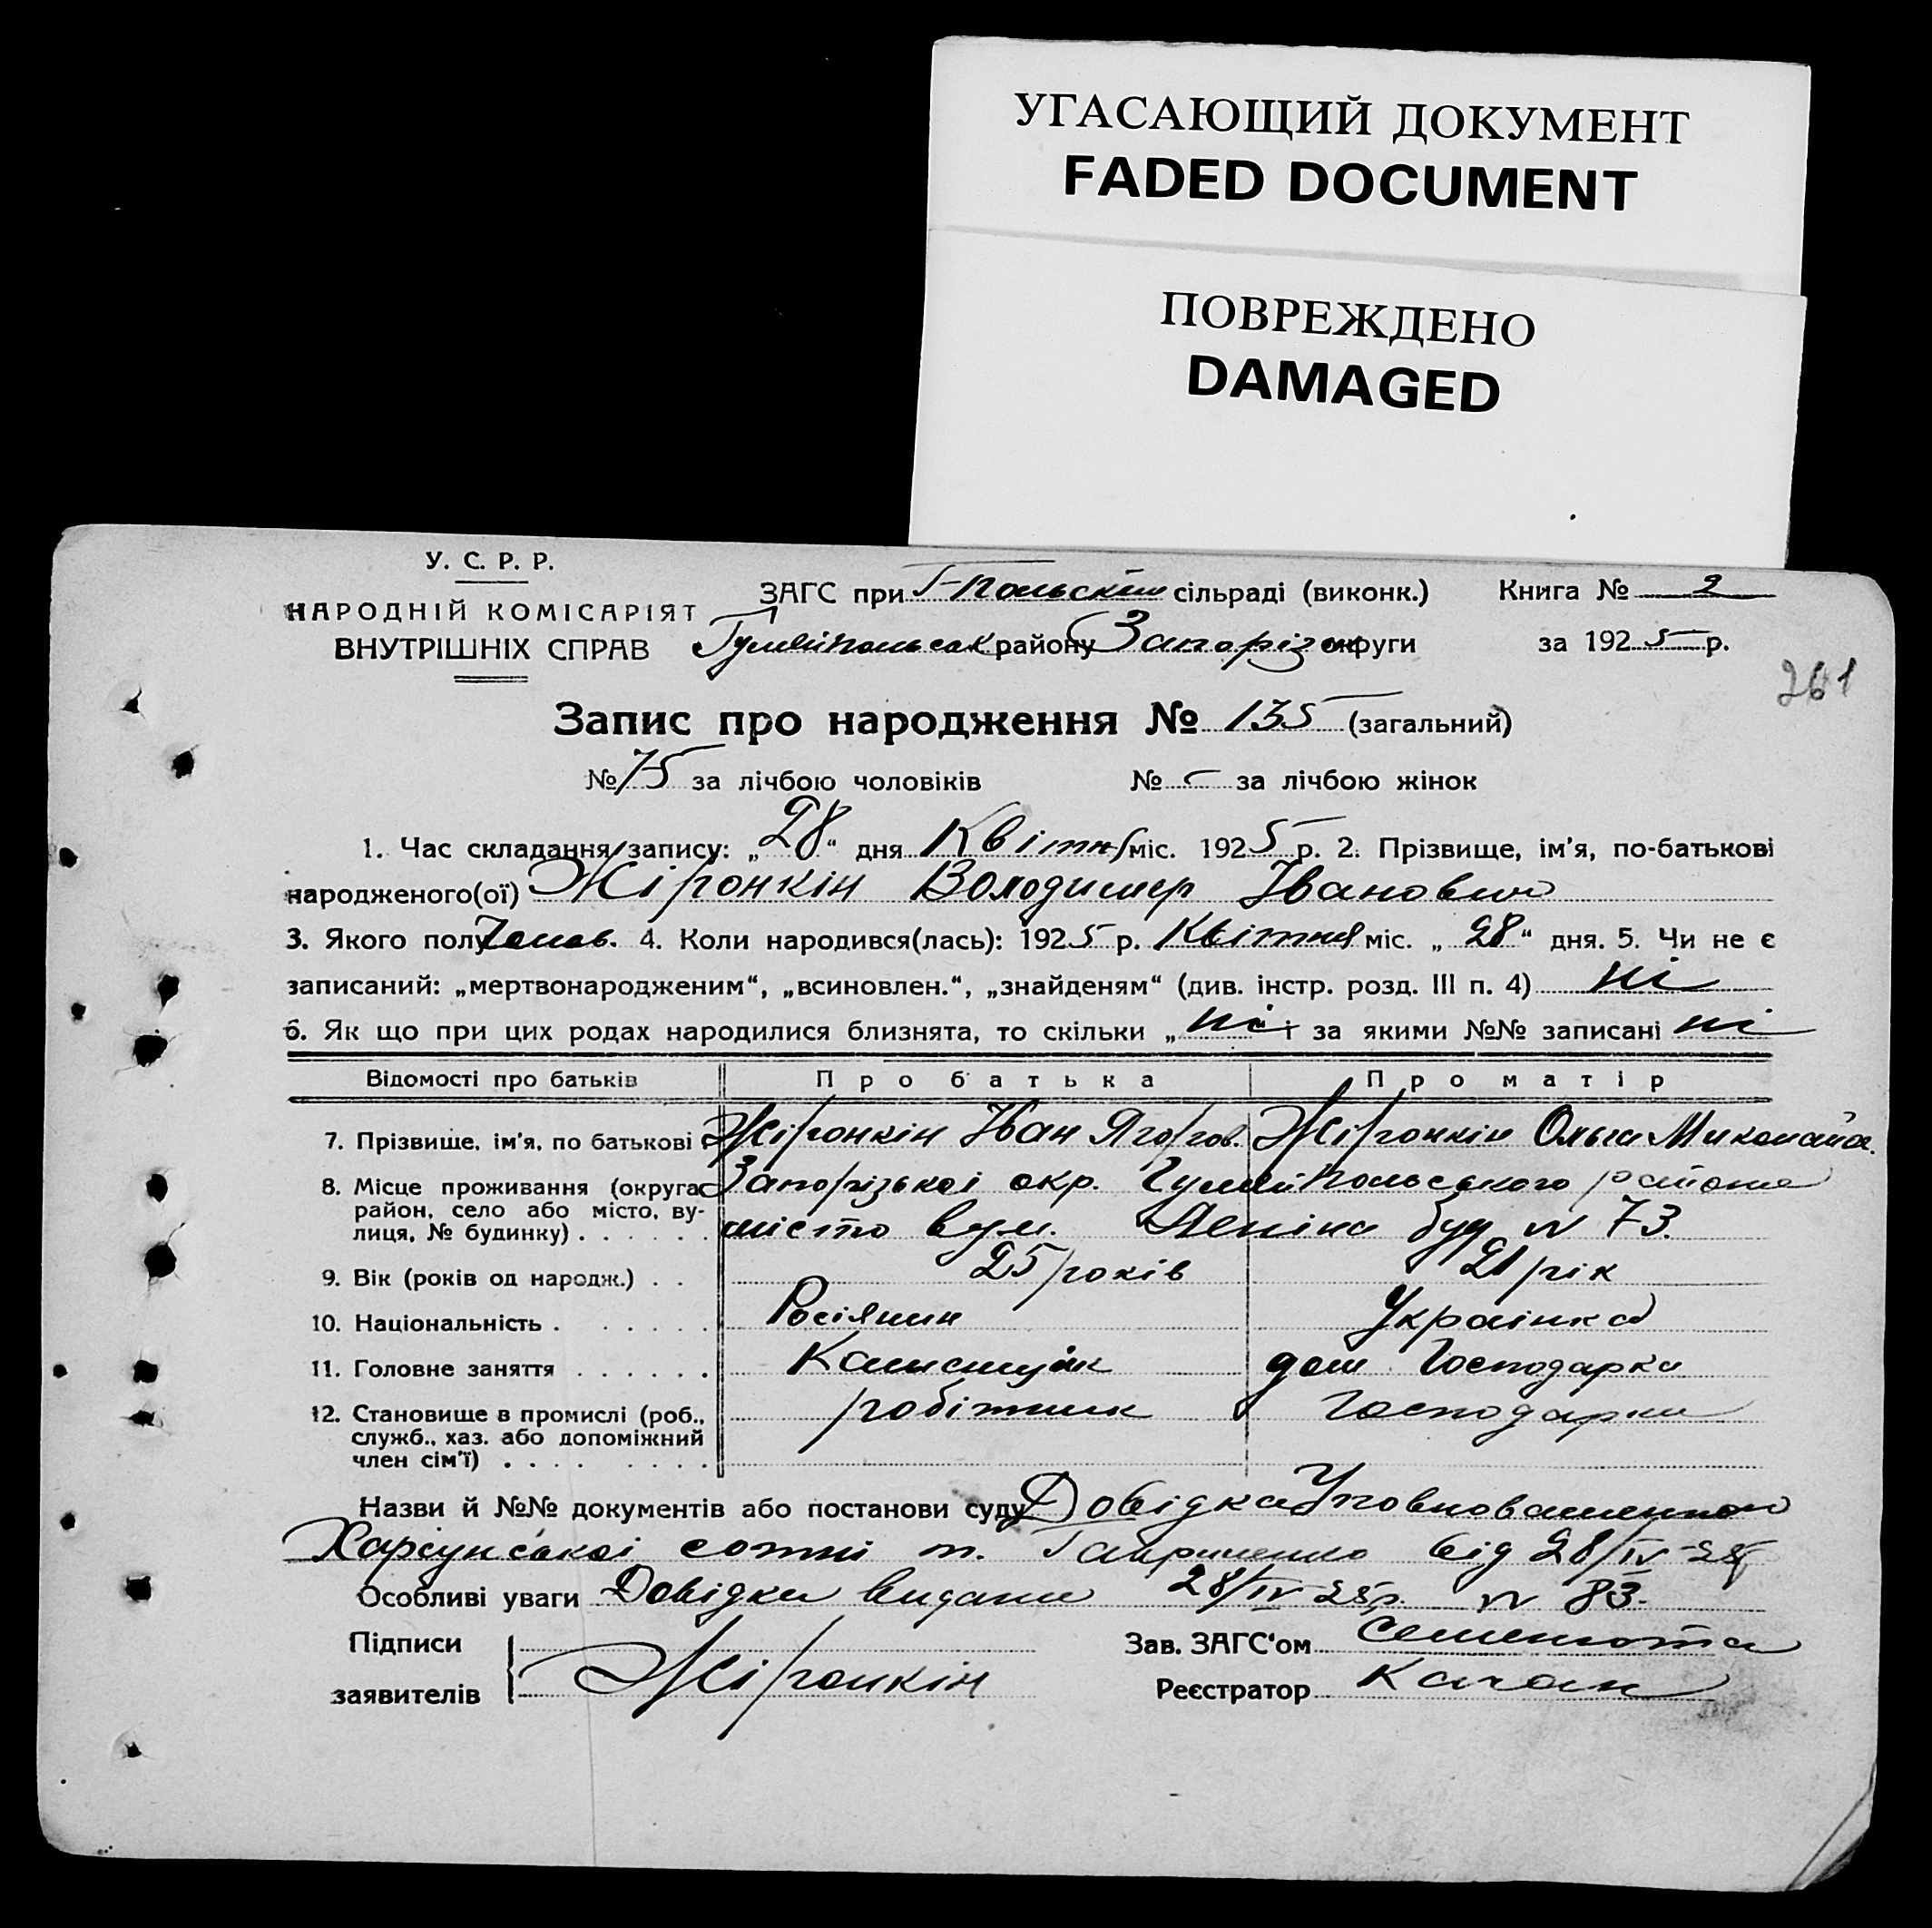 УГАСАЮЩИЙ ДОКУМЕНТ
FADED DOCUMENT
ПОВРЕЖДЕНО
DAMAGED
У. С. Р. Р.
НАРОДНІЙ КОМІСАРІЯТ
ВНУТРІШНІХ СПРАВ
ЗАГС при Г-Польскім сільраді (виконк.) Книга № 2
Гуляйпольськ району Запорізьк округи за 1925 р.
261
Запис про народження № 135 (загальний)
№ 75 за лічбою чоловіків № – за лічбою жінок
1. Час складання запису: „28“ дня Квітня міс. 1925 р. 2. Прізвище, ім’я, по-батькові
народженого(ої) Жіронкін Володимер Іванович
3. Якого полу Чолов. 4. Коли народився(лась): 1925 р. Квітня міс. „28“ дня. 5. Чи не є
записаний: „мертвонародженим“, „всиновлен.“, „знайденям“ (див. інстр. розд. III п. 4) ні
6. Як що при цих родах народилися близнята, то скільки „ні“ і за якими №№ записані ні
Відомості про батьків Про батька Про матір
7. Прізвище, ім’я, по батькові Жіронкін Іван Ягоров. Жіронкін Ольга Миколаїв.
8. Місце проживання (округа, район, село або місто, вулиця, № будинку) Запорізької окр. Гуляйпольського района
місто вул. Леніна буд № 73.
9. Вік (років од народж.) 25 років 21 рік
10. Національність Росіянин Українка
11. Головне заняття дом Господарка
12. Становище в промислі (роб., служб., хаз. або допоміжний член сім’ї) робітник Господарка
Назви й №№ документів або постанови суду Довідка Уповноваженого
Харсунської сотні т. Гавриленко від 28/IV-25р
Особливі уваги Довідка видана 28/IV-25р. № 83.
Підписи Зав. ЗАГС‘ом Семенюта
заявителів Жіронкін Реєстратор